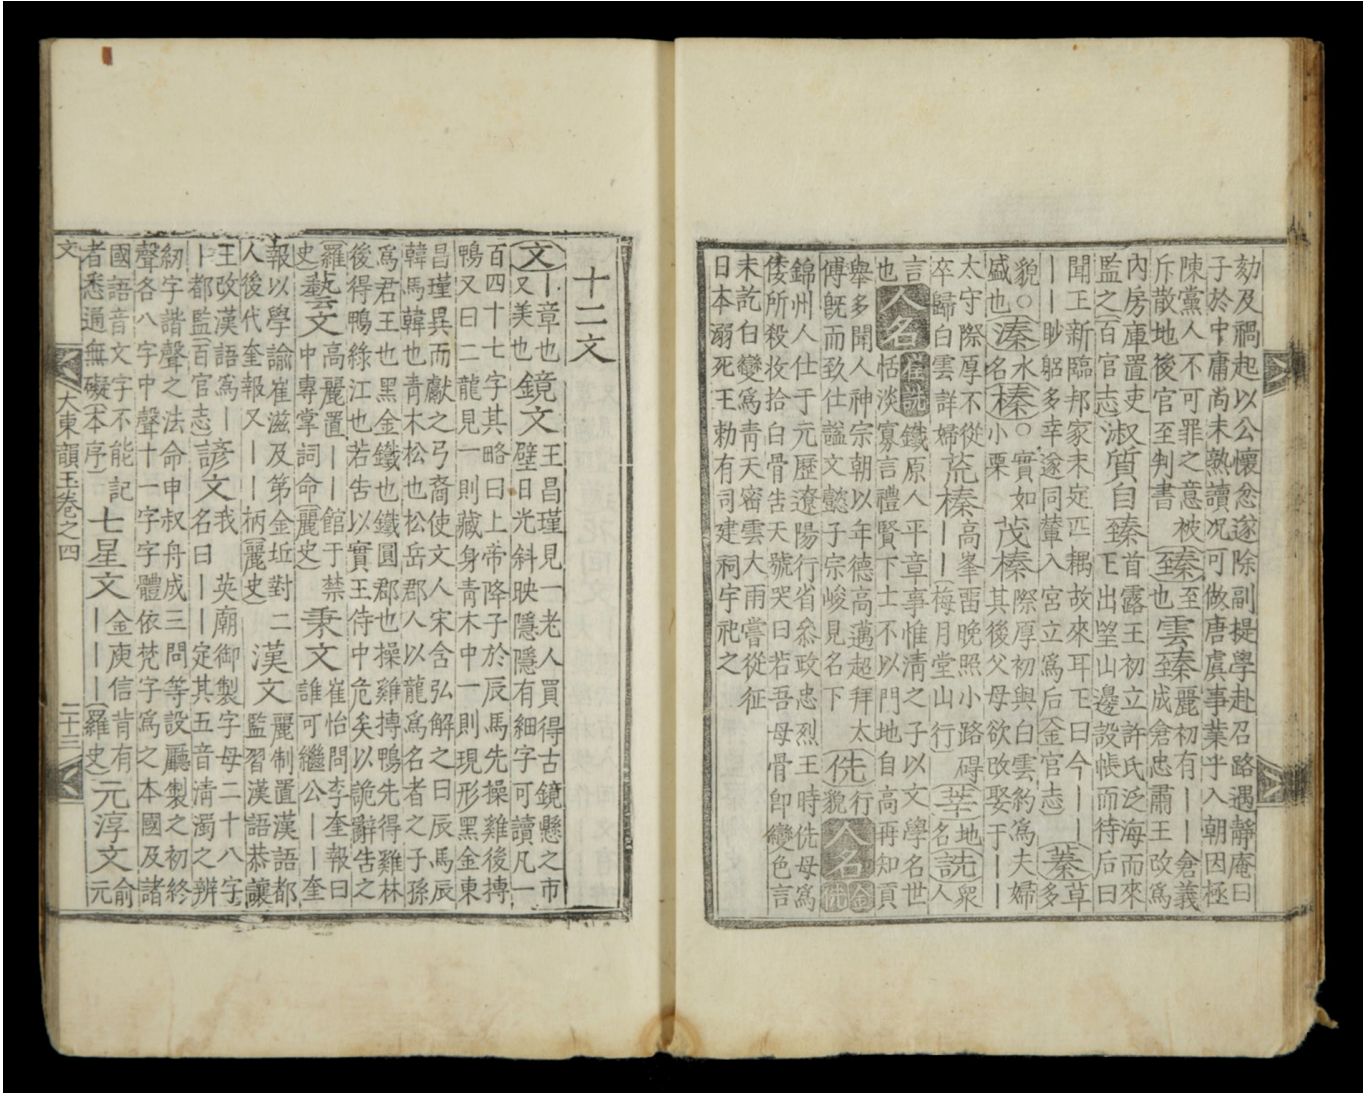 劾及禍起以公懷忿遂除副提學赴召路遇靜庵曰
子於中庸尚未熟讀况可做唐虞事業乎入朝因極
陳黨人不可罪之意被臻至雲臻麗初有丨丨倉義
斥散地後官至判書也至成倉忠肅王改爲
內房庫置吏淑質自臻首露王初立許氏泛海而來
監之百官志王出望山邊設帳而待后曰
聞王新臨邦家未定匹耦故來耳王曰今丨丨蓁草
丨丨眇躬多幸遂同輦入宮立爲后金官志多
貌○溱水榛○實如茂榛際厚初與白雲約爲夫婦
盛也名小栗其後父母欲改娶于丨丨
太守際厚不從荒榛高峯畱晚照小路碍莘地詵衆
卒歸白雲詳婦丨丨梅月堂山行名人
言人名崔詵鐵原人平章事惟清之子以文學名世
也恬淡寡言禮賢下士不以門地自高再知貢
舉多聞人神宗朝以年德高邁超拜太侁行人名金侁
傅旣而致仕謚文懿子宗峻見名下貌
錦州人仕于元歷遼陽行省叅政忠烈王時侁母爲
倭所殺收拾白骨告天號哭曰若吾母骨卽變色言
未訖白變爲青天密雲大雨嘗從征
日本溺死王勅有司建祠宇祀之
十二文
文丨章也鏡文王昌瑾見一老人買得古鏡懸之市
又美也壁日光斜映隱隱有細字可讀凡一
百四十七字其略曰上帝降子於辰馬先操雞後摶
鴨又曰二龍見一則藏身青木中一則現形黑金東
昌瑾異而獻之弓裔使文人宋含弘解之曰辰馬辰
韓馬韓也青木松也松岳郡人以龍爲名者之子孫
爲君王也黑金鐵也鐵圓郡也操雞摶鴨先得雞林
後得鴨綠江也若告以實王侍中危矣以詭辭告之
羅史藝文高麗置丨丨館于禁秉文崔怡問李奎報曰
中專掌詞命麗史誰可繼公丨奎
報以學諭崔滋及第金坵對二漢文麗制置漢語都
人後代奎報又丨丨柄麗史監習漢語恭讓
王改漢語爲丨諺文我英廟御製字母二十八字
丨都監百官志名曰丨丨定其五音清濁之辨
紐字諧聲之法命申叔舟成三問等設廳製之初終
聲各八字中聲十一字字體依梵字爲之本國及諸
國語音文字不能記七星文金庾信背有元淳文俞
者悉通無礙本序丨丨丨羅史元
文
大東韻玉卷之四
二十三